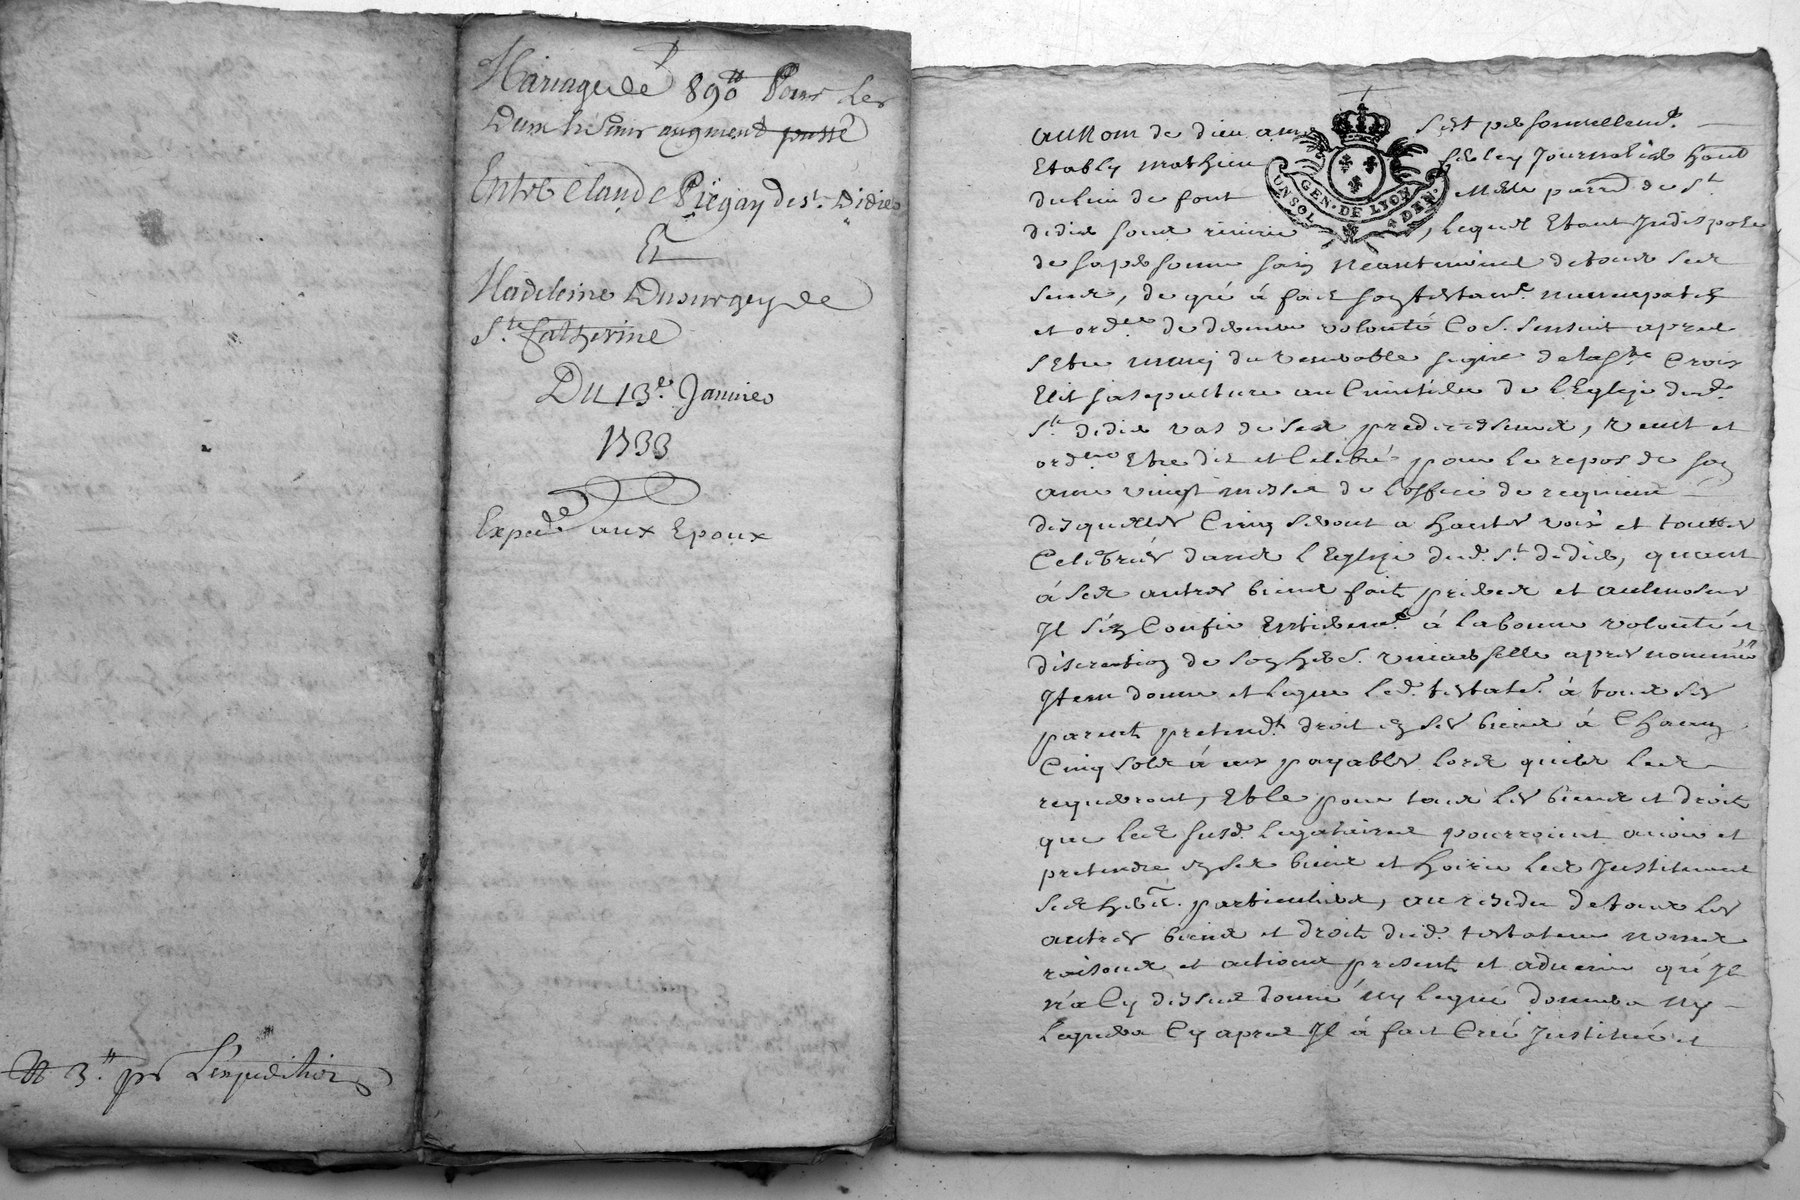 Mariage de 890ᵗᵗ Pour les
augment passé
Entre Claude Piegay de Sᵗ Didier
Et
Madeleine Dusurgey de
Sᵗᵉ Catherine
Du 13ᵉ Janvier
1733
Expedᵉ aux Epoux
3ᵗᵗ pʳ L'expedition
au Nom de dieu amen s'est personnellemᵗ
Etably mathieu Journalier
du lieu de font pierre de Sᵗ
didier sous riverie, lequel Etant Indispose
de sa personne sain Neantmoins de tous ses
sens, de gré à fait son testamᵗ nuncupatif
et ordʳᵉ de derniere volonté Co.e. sensuit apres
s'etre muny du venerable signe de la Sᵗᵉ Croix
Elit sa sepulture au Cimitiere de l'Eglise dudᵗ
Sᵗ didier vas de ses predecesseurs, veut et
ordⁿᵉ Etre dit et Celebré pour le repos de son
ame vingt messes de l'office de requiem
desquelles Cinq seront a hautes voix et touttes
Celebrées dans l'Eglise dudᵗ Sᵗ didier, quant
à ses autres biens fait prieres et aulmosnes
Il s'en Confie Entieremᵗ à la bonne volonté et
discretion de son herᵉ. universelle apres nommée
Item donne et legue ledᵗ testatʳ à tous ses
parents pretendᵗ droit en ses biens à Chacun
Cinq sols à eux payables lors quils les
requeront, Et ce pour tous les biens et droit
que les susdᵗ legataires pourroient avoir et
pretendre en ses biens et hoirie les Instituant
ses herˢ. particuliers, au residu de tous les
autres biens et droit dudᵗ testateur noms
raisons et actions present et advenir qu'Il
n'a Cy dessus donné ny legué donnera ny
leguera Cy apres Il à fait Créé Institué et
GEN. DE LYON
UN SOL 4 DEN.